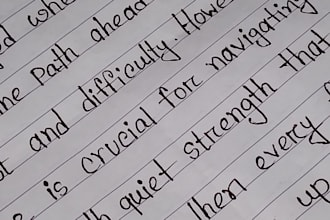 when
the Path ahead
and difficulty. Howe
is crucial for navigating
quiet strength that
then every
up